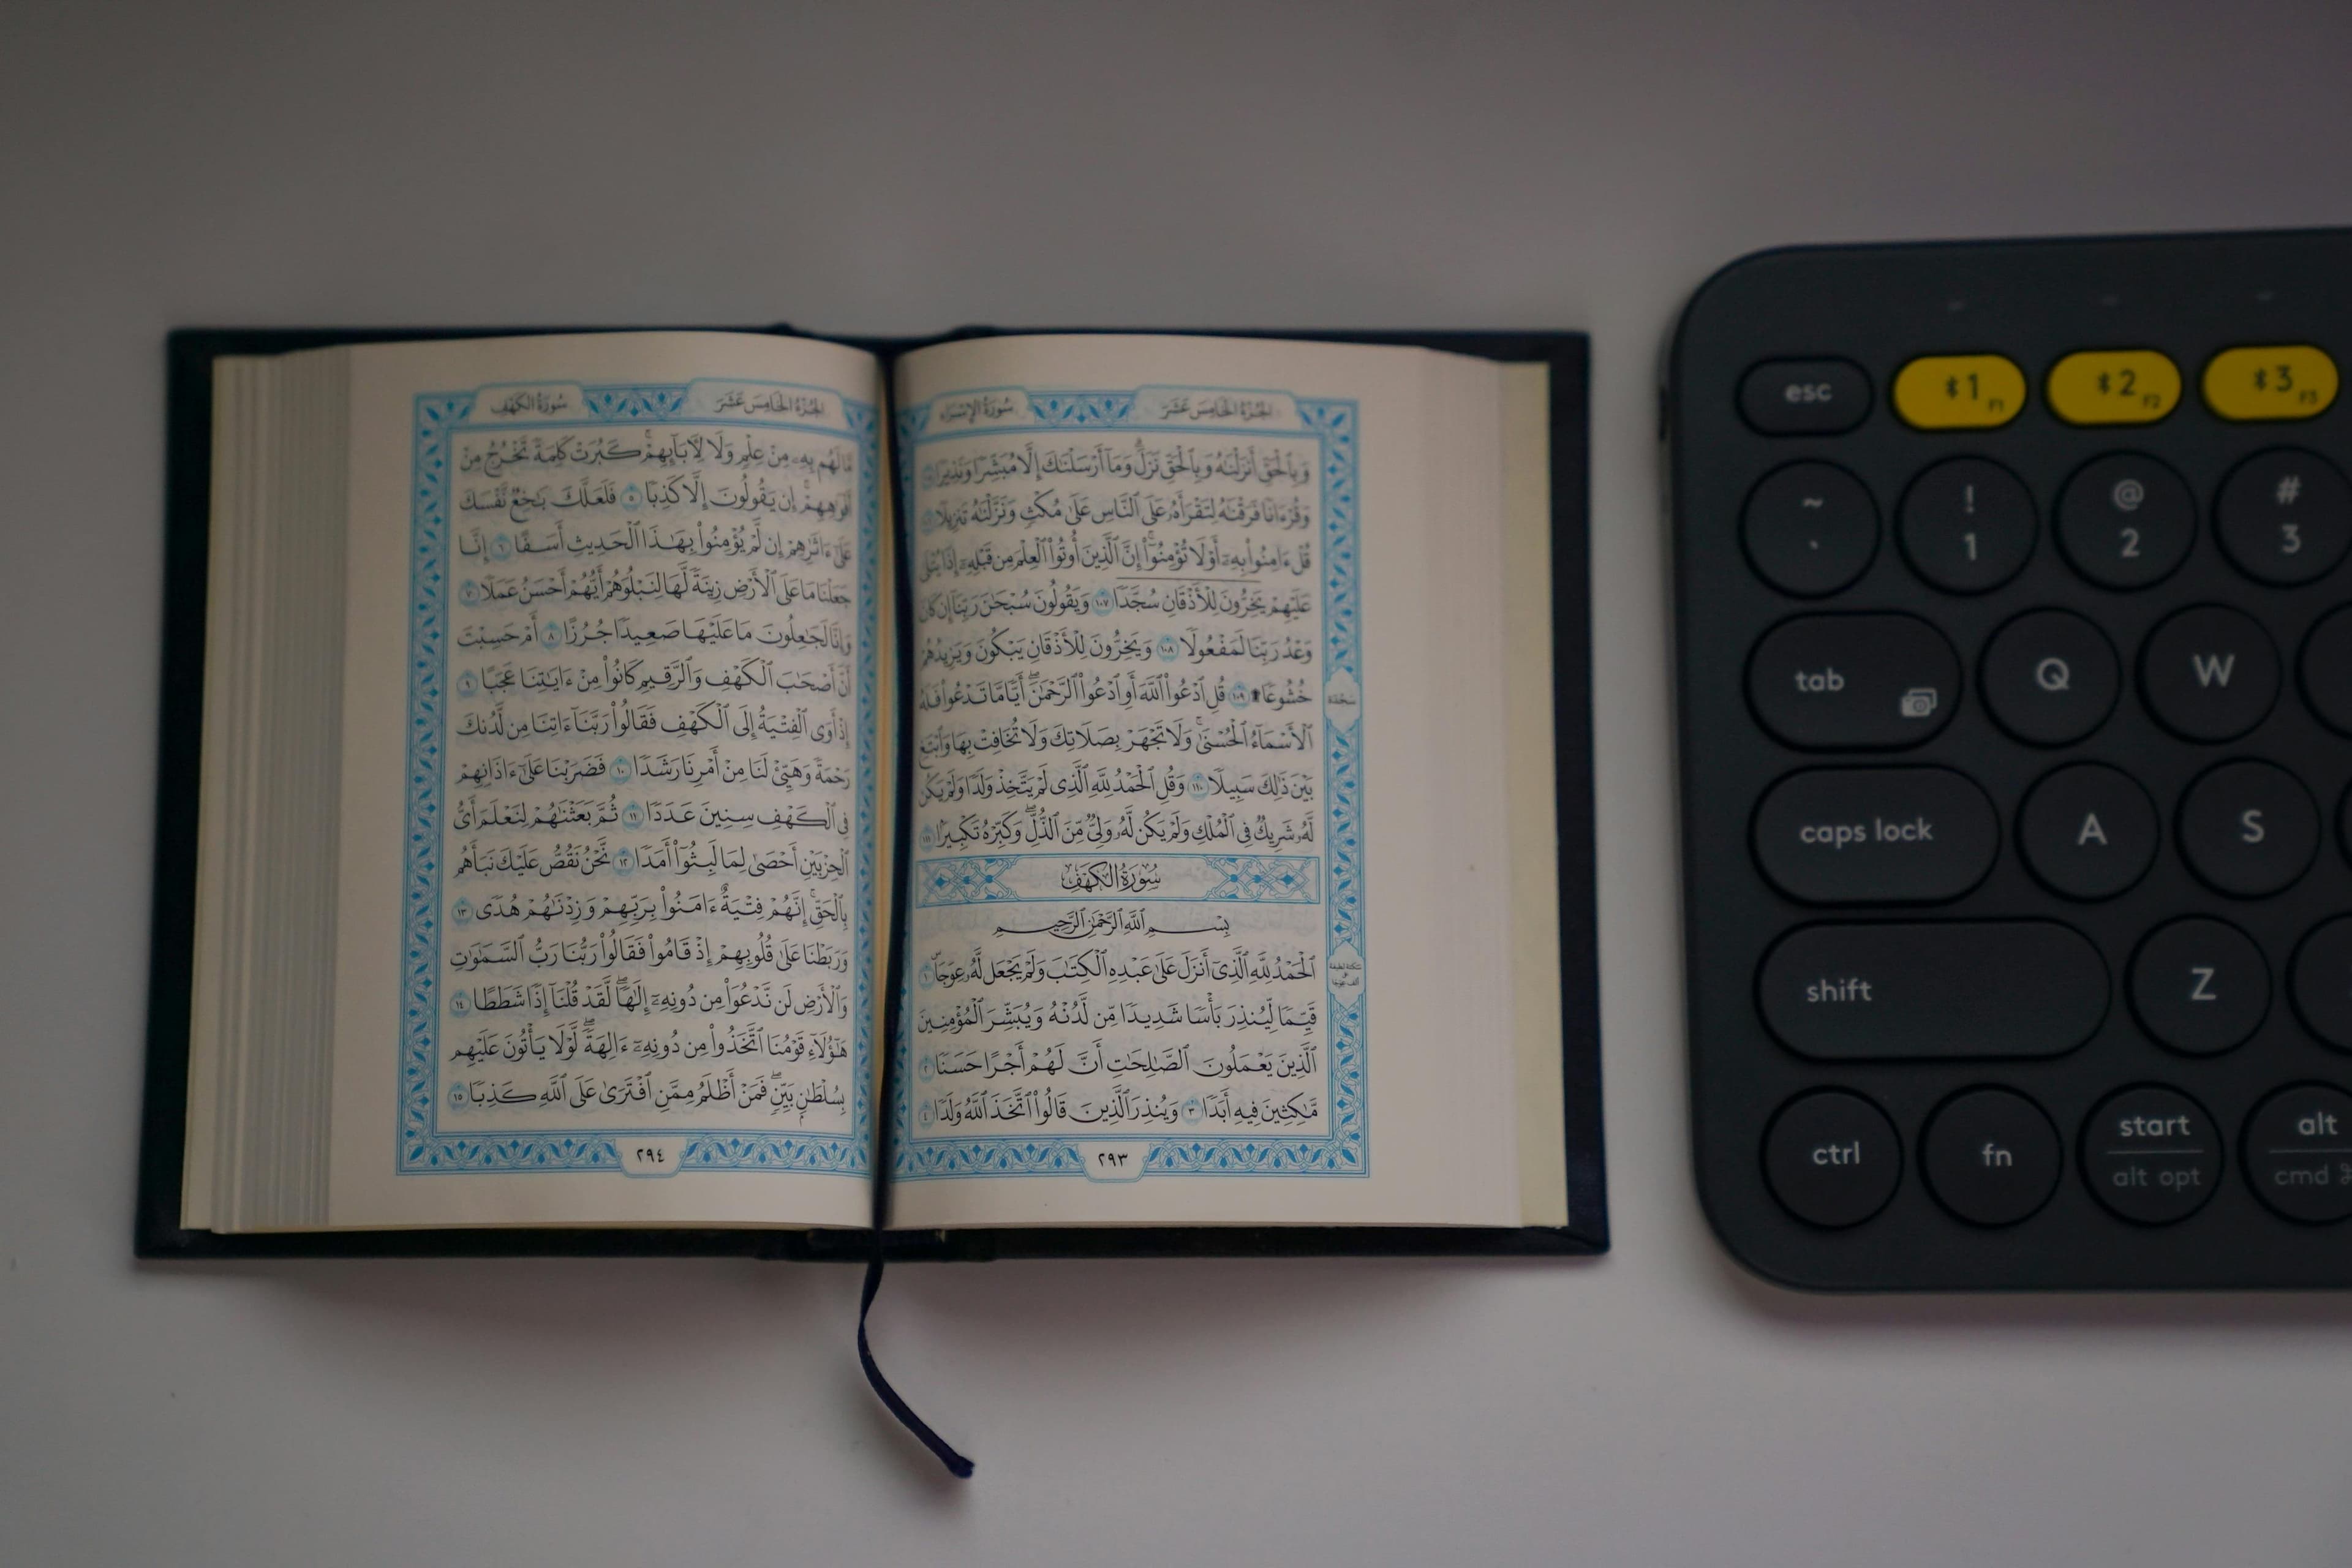 الجزء الخامس عشر
سورة الإسراء
وَبِٱلْحَقِّ أَنزَلْنَٰهُ وَبِٱلْحَقِّ نَزَلَ ۗ وَمَآ أَرْسَلْنَٰكَ إِلَّا مُبَشِّرًا وَنَذِيرًا ١٠٥
وَقُرْءَانًا فَرَقْنَٰهُ لِتَقْرَأَهُۥ عَلَى ٱلنَّاسِ عَلَىٰ مُكْثٍ وَنَزَّلْنَٰهُ تَنزِيلًا ١٠٦
قُلْ ءَامِنُوا۟ بِهِۦٓ أَوْ لَا تُؤْمِنُوٓا۟ ۚ إِنَّ ٱلَّذِينَ أُوتُوا۟ ٱلْعِلْمَ مِن قَبْلِهِۦٓ إِذَا يُتْلَىٰ
عَلَيْهِمْ يَخِرُّونَ لِلْأَذْقَانِ سُجَّدًا ١٠٧ وَيَقُولُونَ سُبْحَٰنَ رَبِّنَآ إِن كَانَ
وَعْدُ رَبِّنَا لَمَفْعُولًا ١٠٨ وَيَخِرُّونَ لِلْأَذْقَانِ يَبْكُونَ وَيَزِيدُهُمْ
خُشُوعًا ۩ ١٠٩ قُلِ ٱدْعُوا۟ ٱللَّهَ أَوِ ٱدْعُوا۟ ٱلرَّحْمَٰنَ ۖ أَيًّا مَّا تَدْعُوا۟ فَلَهُ
ٱلْأَسْمَآءُ ٱلْحُسْنَىٰ ۚ وَلَا تَجْهَرْ بِصَلَاتِكَ وَلَا تُخَافِتْ بِهَا وَٱبْتَغِ
بَيْنَ ذَٰلِكَ سَبِيلًا ١١٠ وَقُلِ ٱلْحَمْدُ لِلَّهِ ٱلَّذِى لَمْ يَتَّخِذْ وَلَدًا وَلَمْ يَكُن
لَّهُۥ شَرِيكٌ فِى ٱلْمُلْكِ وَلَمْ يَكُن لَّهُۥ وَلِىٌّ مِّنَ ٱلذُّلِّ ۖ وَكَبِّرْهُ تَكْبِيرًۢا ١١١
سُورَةُ الكَهْفِ
بِسْمِ ٱللَّهِ ٱلرَّحْمَٰنِ ٱلرَّحِيمِ
ٱلْحَمْدُ لِلَّهِ ٱلَّذِىٓ أَنزَلَ عَلَىٰ عَبْدِهِ ٱلْكِتَٰبَ وَلَمْ يَجْعَل لَّهُۥ عِوَجَا ۜ ١
قَيِّمًا لِّيُنذِرَ بَأْسًا شَدِيدًا مِّن لَّدُنْهُ وَيُبَشِّرَ ٱلْمُؤْمِنِينَ
ٱلَّذِينَ يَعْمَلُونَ ٱلصَّٰلِحَٰتِ أَنَّ لَهُمْ أَجْرًا حَسَنًا ٢
مَّٰكِثِينَ فِيهِ أَبَدًا ٣ وَيُنذِرَ ٱلَّذِينَ قَالُوا۟ ٱتَّخَذَ ٱللَّهُ وَلَدًا ٤
سجدة
٢٩٣
الجزء الخامس عشر
سورة الكهف
مَّا لَهُم بِهِۦ مِنْ عِلْمٍ وَلَا لِءَابَآئِهِمْ ۚ كَبُرَتْ كَلِمَةً تَخْرُجُ مِنْ
أَفْوَٰهِهِمْ ۚ إِن يَقُولُونَ إِلَّا كَذِبًا ٥ فَلَعَلَّكَ بَٰخِعٌ نَّفْسَكَ
عَلَىٰٓ ءَاثَٰرِهِمْ إِن لَّمْ يُؤْمِنُوا۟ بِهَٰذَا ٱلْحَدِيثِ أَسَفًا ٦ إِنَّا
جَعَلْنَا مَا عَلَى ٱلْأَرْضِ زِينَةً لَّهَا لِنَبْلُوَهُمْ أَيُّهُمْ أَحْسَنُ عَمَلًا ٧
وَإِنَّا لَجَٰعِلُونَ مَا عَلَيْهَا صَعِيدًا جُرُزًا ٨ أَمْ حَسِبْتَ
أَنَّ أَصْحَٰبَ ٱلْكَهْفِ وَٱلرَّقِيمِ كَانُوا۟ مِنْ ءَايَٰتِنَا عَجَبًا ٩
إِذْ أَوَى ٱلْفِتْيَةُ إِلَى ٱلْكَهْفِ فَقَالُوا۟ رَبَّنَآ ءَاتِنَا مِن لَّدُنكَ
رَحْمَةً وَهَيِّئْ لَنَا مِنْ أَمْرِنَا رَشَدًا ١٠ فَضَرَبْنَا عَلَىٰٓ ءَاذَانِهِمْ
فِى ٱلْكَهْفِ سِنِينَ عَدَدًا ١١ ثُمَّ بَعَثْنَٰهُمْ لِنَعْلَمَ أَىُّ
ٱلْحِزْبَيْنِ أَحْصَىٰ لِمَا لَبِثُوٓا۟ أَمَدًا ١٢ نَّحْنُ نَقُصُّ عَلَيْكَ نَبَأَهُم
بِٱلْحَقِّ ۚ إِنَّهُمْ فِتْيَةٌ ءَامَنُوا۟ بِرَبِّهِمْ وَزِدْنَٰهُمْ هُدًى ١٣
وَرَبَطْنَا عَلَىٰ قُلُوبِهِمْ إِذْ قَامُوا۟ فَقَالُوا۟ رَبُّنَا رَبُّ ٱلسَّمَٰوَٰتِ
وَٱلْأَرْضِ لَن نَّدْعُوَا۟ مِن دُونِهِۦٓ إِلَٰهًا ۖ لَّقَدْ قُلْنَآ إِذًا شَطَطًا ١٤
هَٰٓؤُلَآءِ قَوْمُنَا ٱتَّخَذُوا۟ مِن دُونِهِۦٓ ءَالِهَةً ۖ لَّوْلَا يَأْتُونَ عَلَيْهِم
بِسُلْطَٰنٍۭ بَيِّنٍ ۖ فَمَنْ أَظْلَمُ مِمَّنِ ٱفْتَرَىٰ عَلَى ٱللَّهِ كَذِبًا ١٥
٢٩٤
esc 1 F1 2 F2 3 F3
~ ! @ #
` 1 2 3
tab Q W
caps lock A S
shift Z
ctrl fn start alt
alt opt cmd ⌘